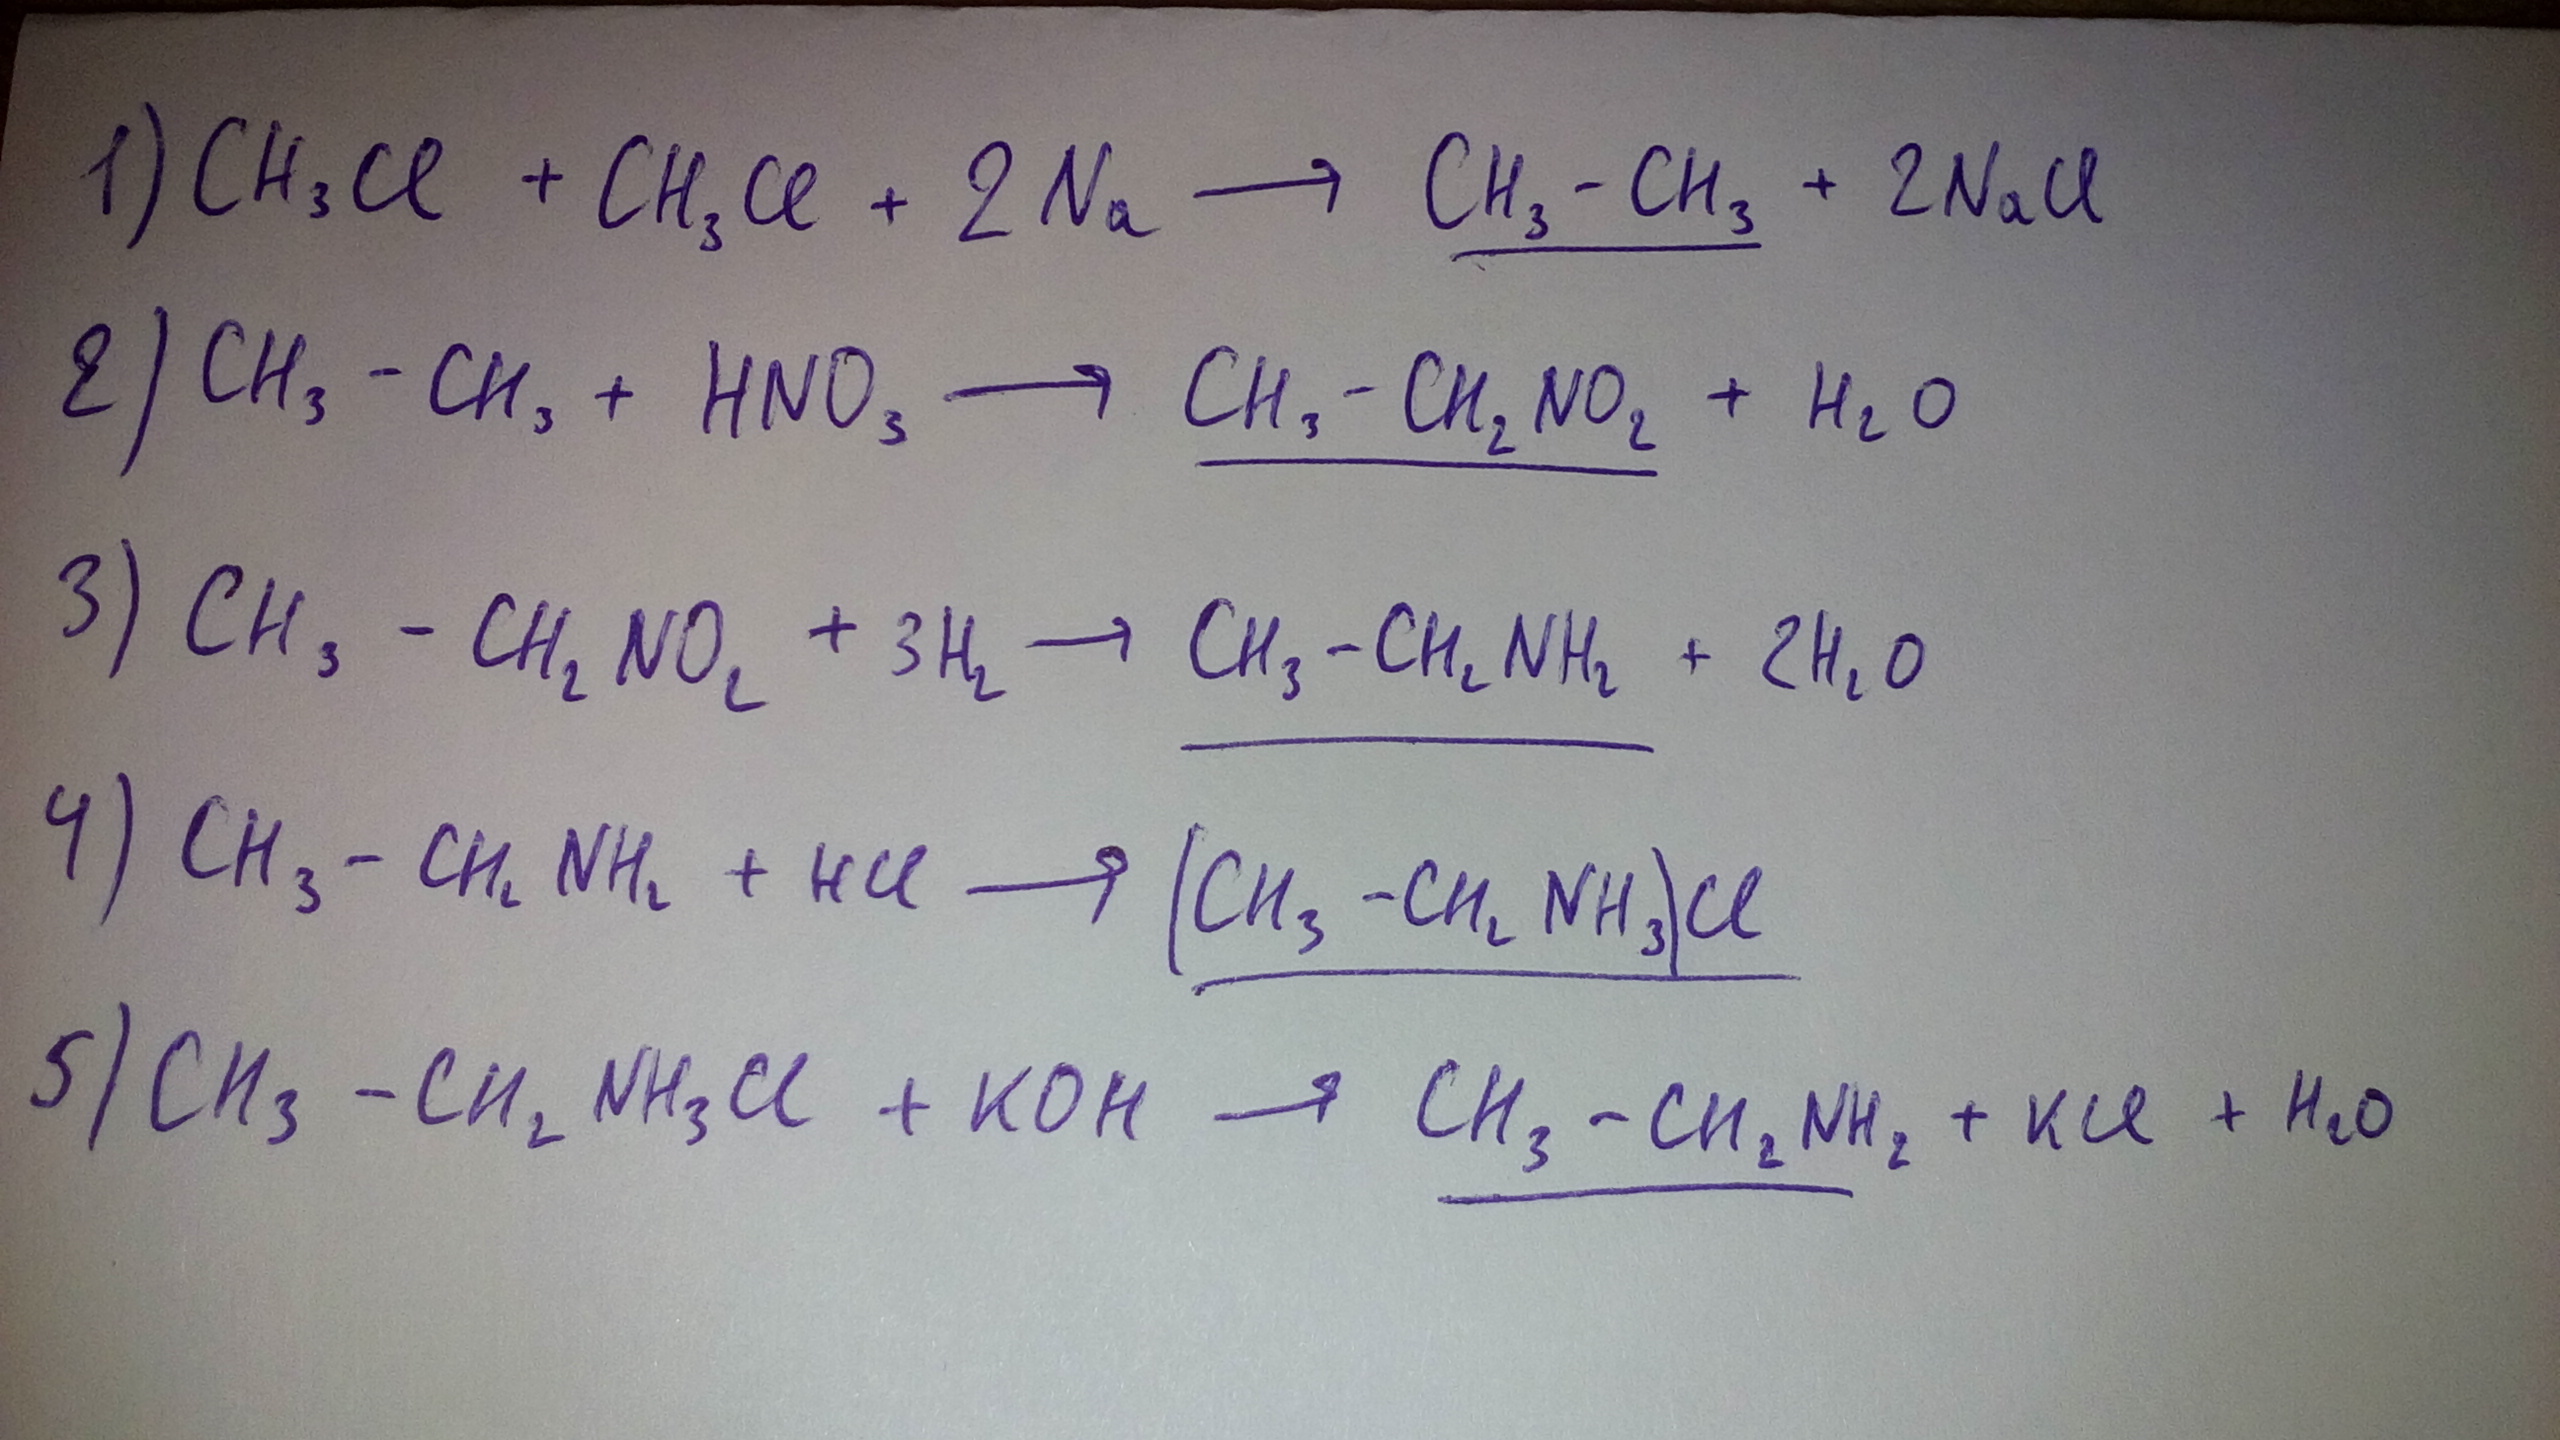 1) CH₃Cl + CH₃Cl + 2Na → CH₃-CH₃ + 2NaCl
2) CH₃-CH₃ + HNO₃ → CH₃-CH₂NO₂ + H₂O
3) CH₃-CH₂NO₂ + 3H₂ → CH₃-CH₂NH₂ + 2H₂O
4) CH₃-CH₂NH₂ + HCl → (CH₃-CH₂NH₃)Cl
5) CH₃-CH₂NH₃Cl + KOH → CH₃-CH₂NH₂ + KCl + H₂O